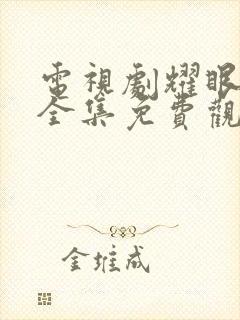 電視劇耀眼
全集免費觀
金堆成